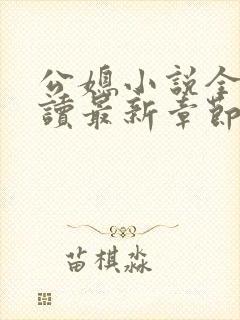 公媳小説全
讀最新章節
苗棋淼